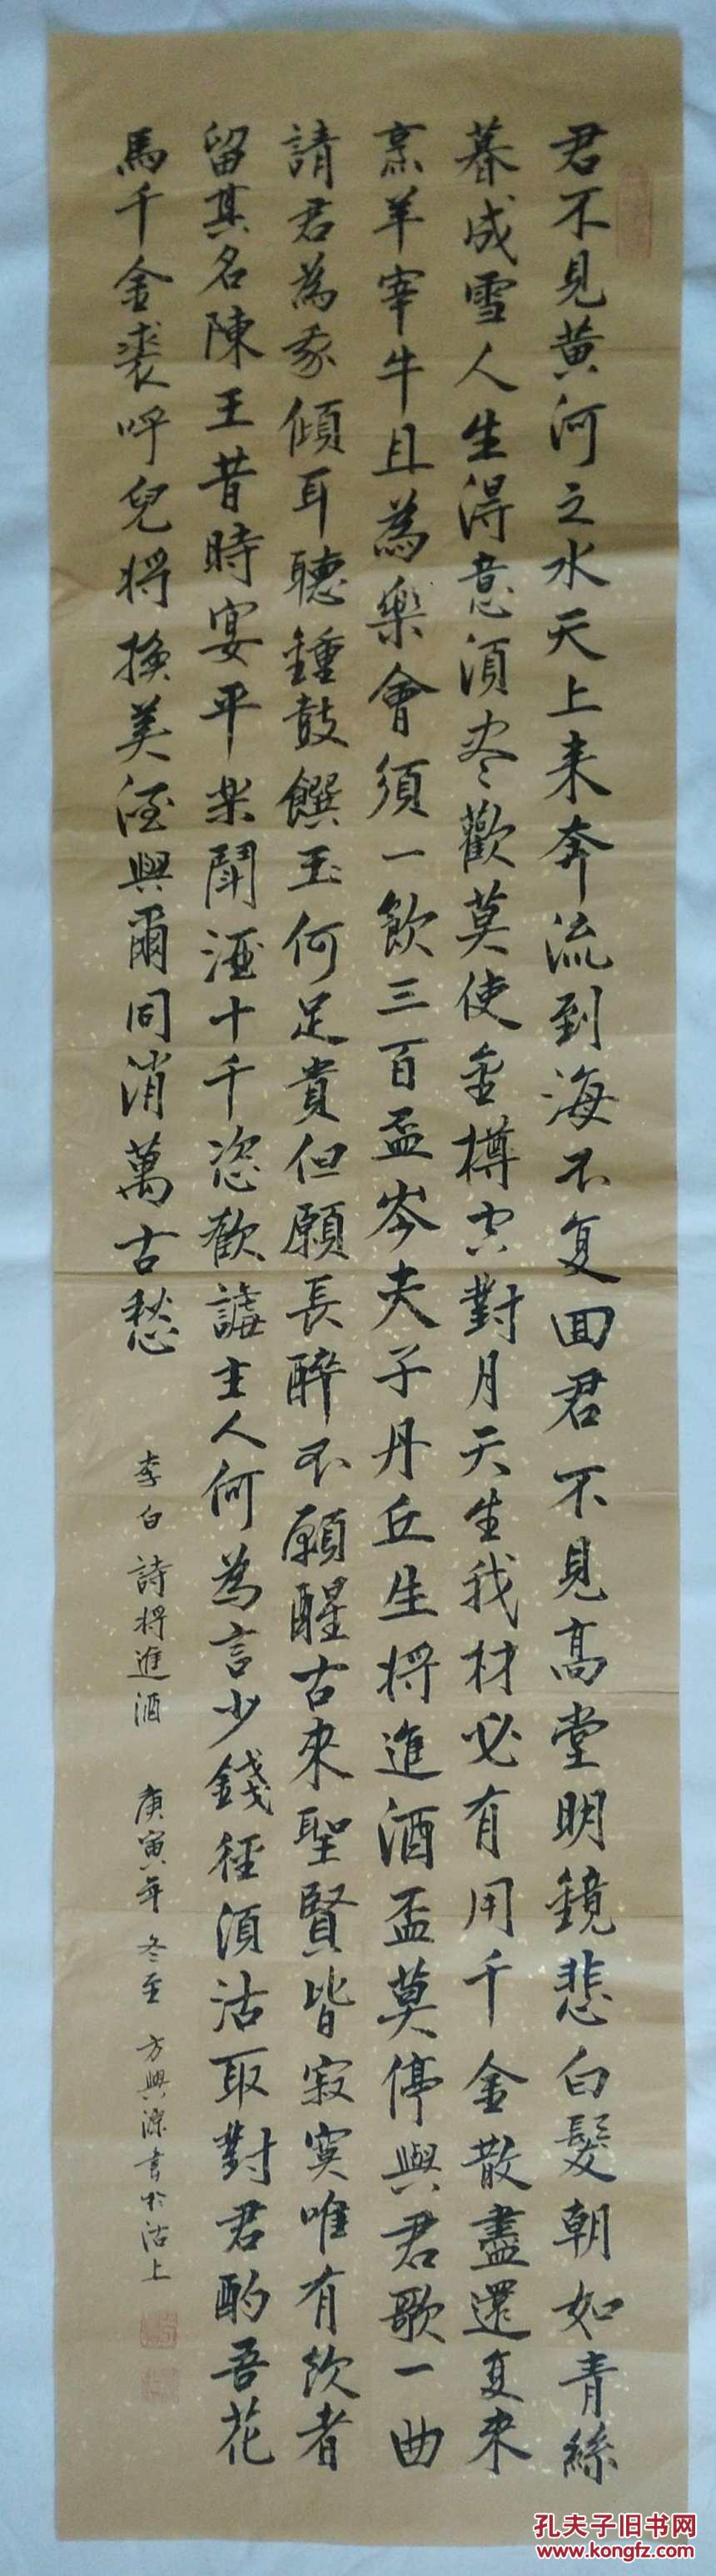 君不見黄河之水天上来奔流到海不复回君不見高堂明鏡悲白髮朝如青絲
暮成雪人生得意須尽歡莫使金樽空對月天生我材必有用千金散盡還复来
烹羊宰牛且為樂會須一飲三百盃岑夫子丹丘生将進酒盃莫停與君歌一曲
請君為我傾耳聽鍾鼓饌玉何足貴但願長醉不願醒古来聖賢皆寂寞唯有飲者
留其名陳王昔時宴平楽鬪酒十千恣歡謔主人何為言少錢径須沽取對君酌吾花
馬千金裘呼兒将換美酒與爾同消萬古愁
李白詩将進酒 庚寅年冬至 方興源書於沽上
孔夫子旧书网
www.kongfz.com